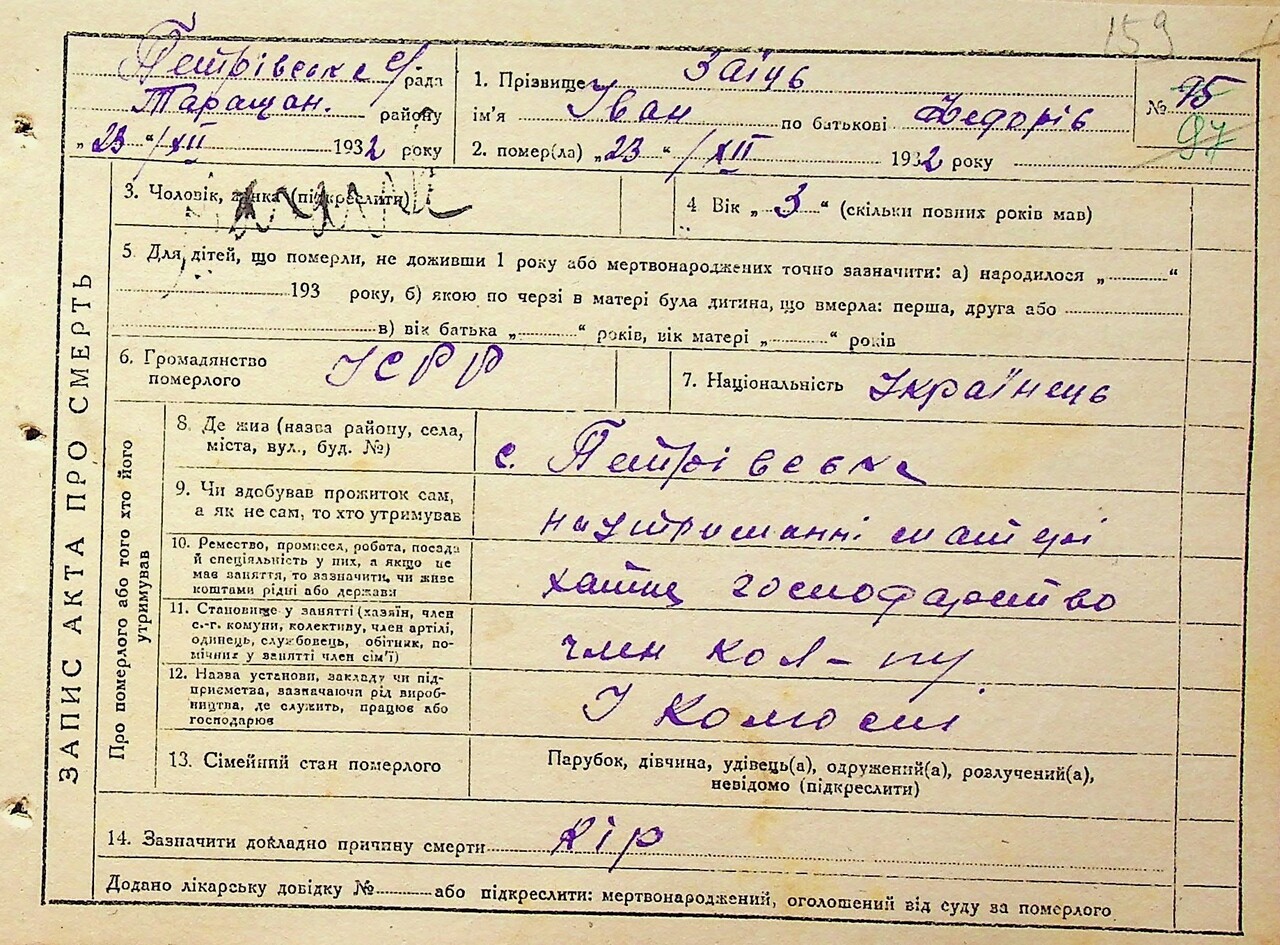 159
Петрівська с/рада
Таращан. району
„23“/XII 1932 року
1. Прізвище Заїць
ім'я Іван по батькові Федорів
2. помер(ла) „23“/XII 1932 року
№ 95
97
ЗАПИС АКТА ПРО СМЕРТЬ
3. Чоловік, жінка (підкреслити)
4 Вік „3“ (скільки повних років мав)
5. Для дітей, що померли, не доживши 1 року або мертвонароджених точно зазначити: а) народилося „ “
193 року, б) якою по черзі в матері була дитина, що вмерла: перша, друга або
в) вік батька „ “ років, вік матері „ “ років
6. Громадянство
померлого УСРР
7. Національність Українець
Про померлого або того хто його
утримував
8. Де жив (назва району, села,
міста, вул., буд. №)
с. Петрівська
9. Чи здобував прожиток сам,
а як не сам, то хто утримував
на утриманні матері
10. Ремество, промисел, робота, посада
й спеціяльність у них, а якщо не
має заняття, то зазначити, чи живе
коштами рідні або держави
хатнє господарство
11. Становище у занятті (хазяїн, член
с.-г. комуни, колективу, член артілі,
одинець, службовець, обітник, по-
мічник у занятті член сім'ї)
член кол-пу
12. Назва установи, закладу чи під-
приємства, зазначаючи рід вироб-
ництва, де служить, працює або
господарює
У колоспі
13. Сімейний стан померлого
Парубок, дівчина, удівець(а), одружений(а), розлучений(а),
невідомо (підкреслити)
14. Зазначити докладно причину смерти Кір
Додано лікарську довідку № або підкреслити: мертвонароджений, оголошений від суду за померлого